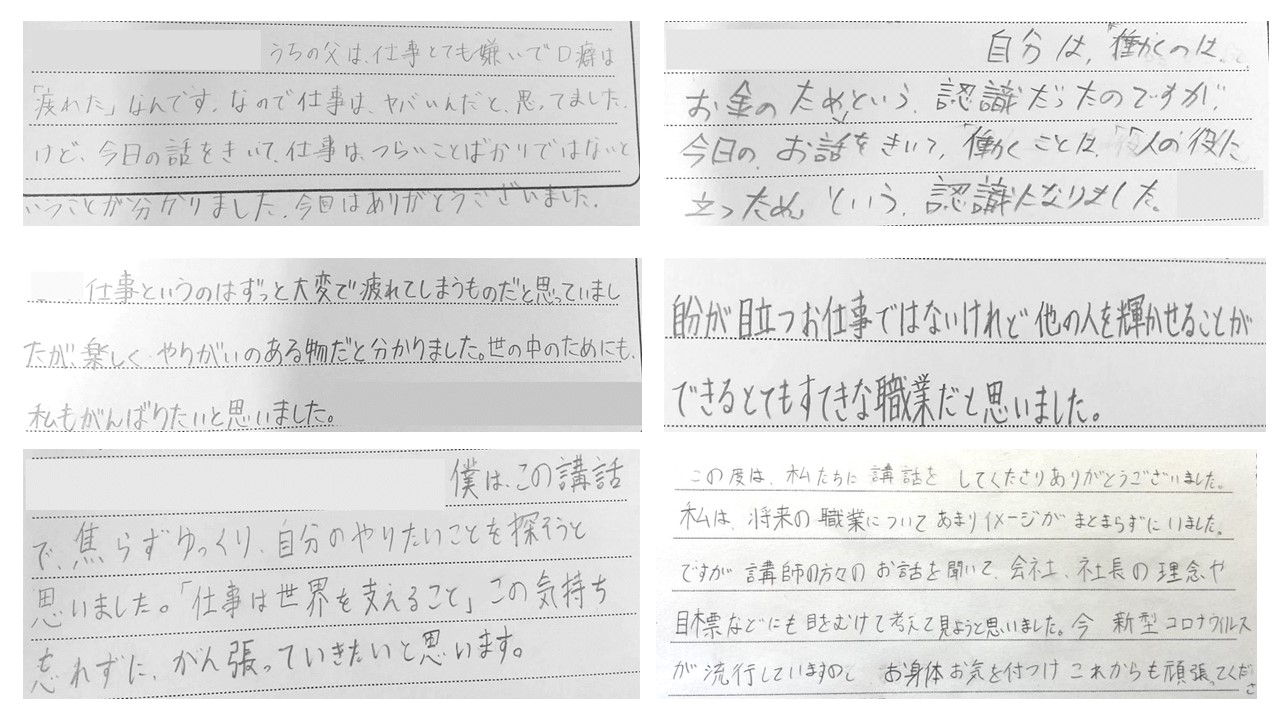 うちの父は、仕事とても嫌いで口癖は
「疲れた」なんです。なので仕事は、ヤバいんだと、思ってました。
けど、今日の話をきいて、仕事は、つらいことばかりではないと
いうことが分かりました。今回はありがとうございました。
自分は、「働くのは、
お金のため」という、認識だったのですが、
今日の、お話をきいて、「働く ことは、人の役に
立つため」という、認識になりました。
仕事というのはずっと大変で疲れてしまうものだと思っていまし
たが、楽しく、やりがいのある物だと分かりました。世の中のためにも、
私もがんばりたいと思いました。
自分が目立つお仕事ではないけれど他の人を輝かせることが
できるとてもすてきな職業だと思いました。
僕は、この講話
で、焦らずゆっくり、自分のやりたいことを探そうと
思いました。「仕事は世界を支えること」この気持ち
忘れずに、がん張っていきたいと思います。
この度は、私たちに 講話を してくださりありがとうございました。
私は、将来の 職業について あまりイメージが まとまらずに いました。
ですが 講師の方々の お話を聞いて、会社、社長の 理念や
目標などにも目をむけて考えて見ようと思いました。今 新型コロナウイルス
が 流行していますので お身体 お気を付つけ これからも頑張ってくださ